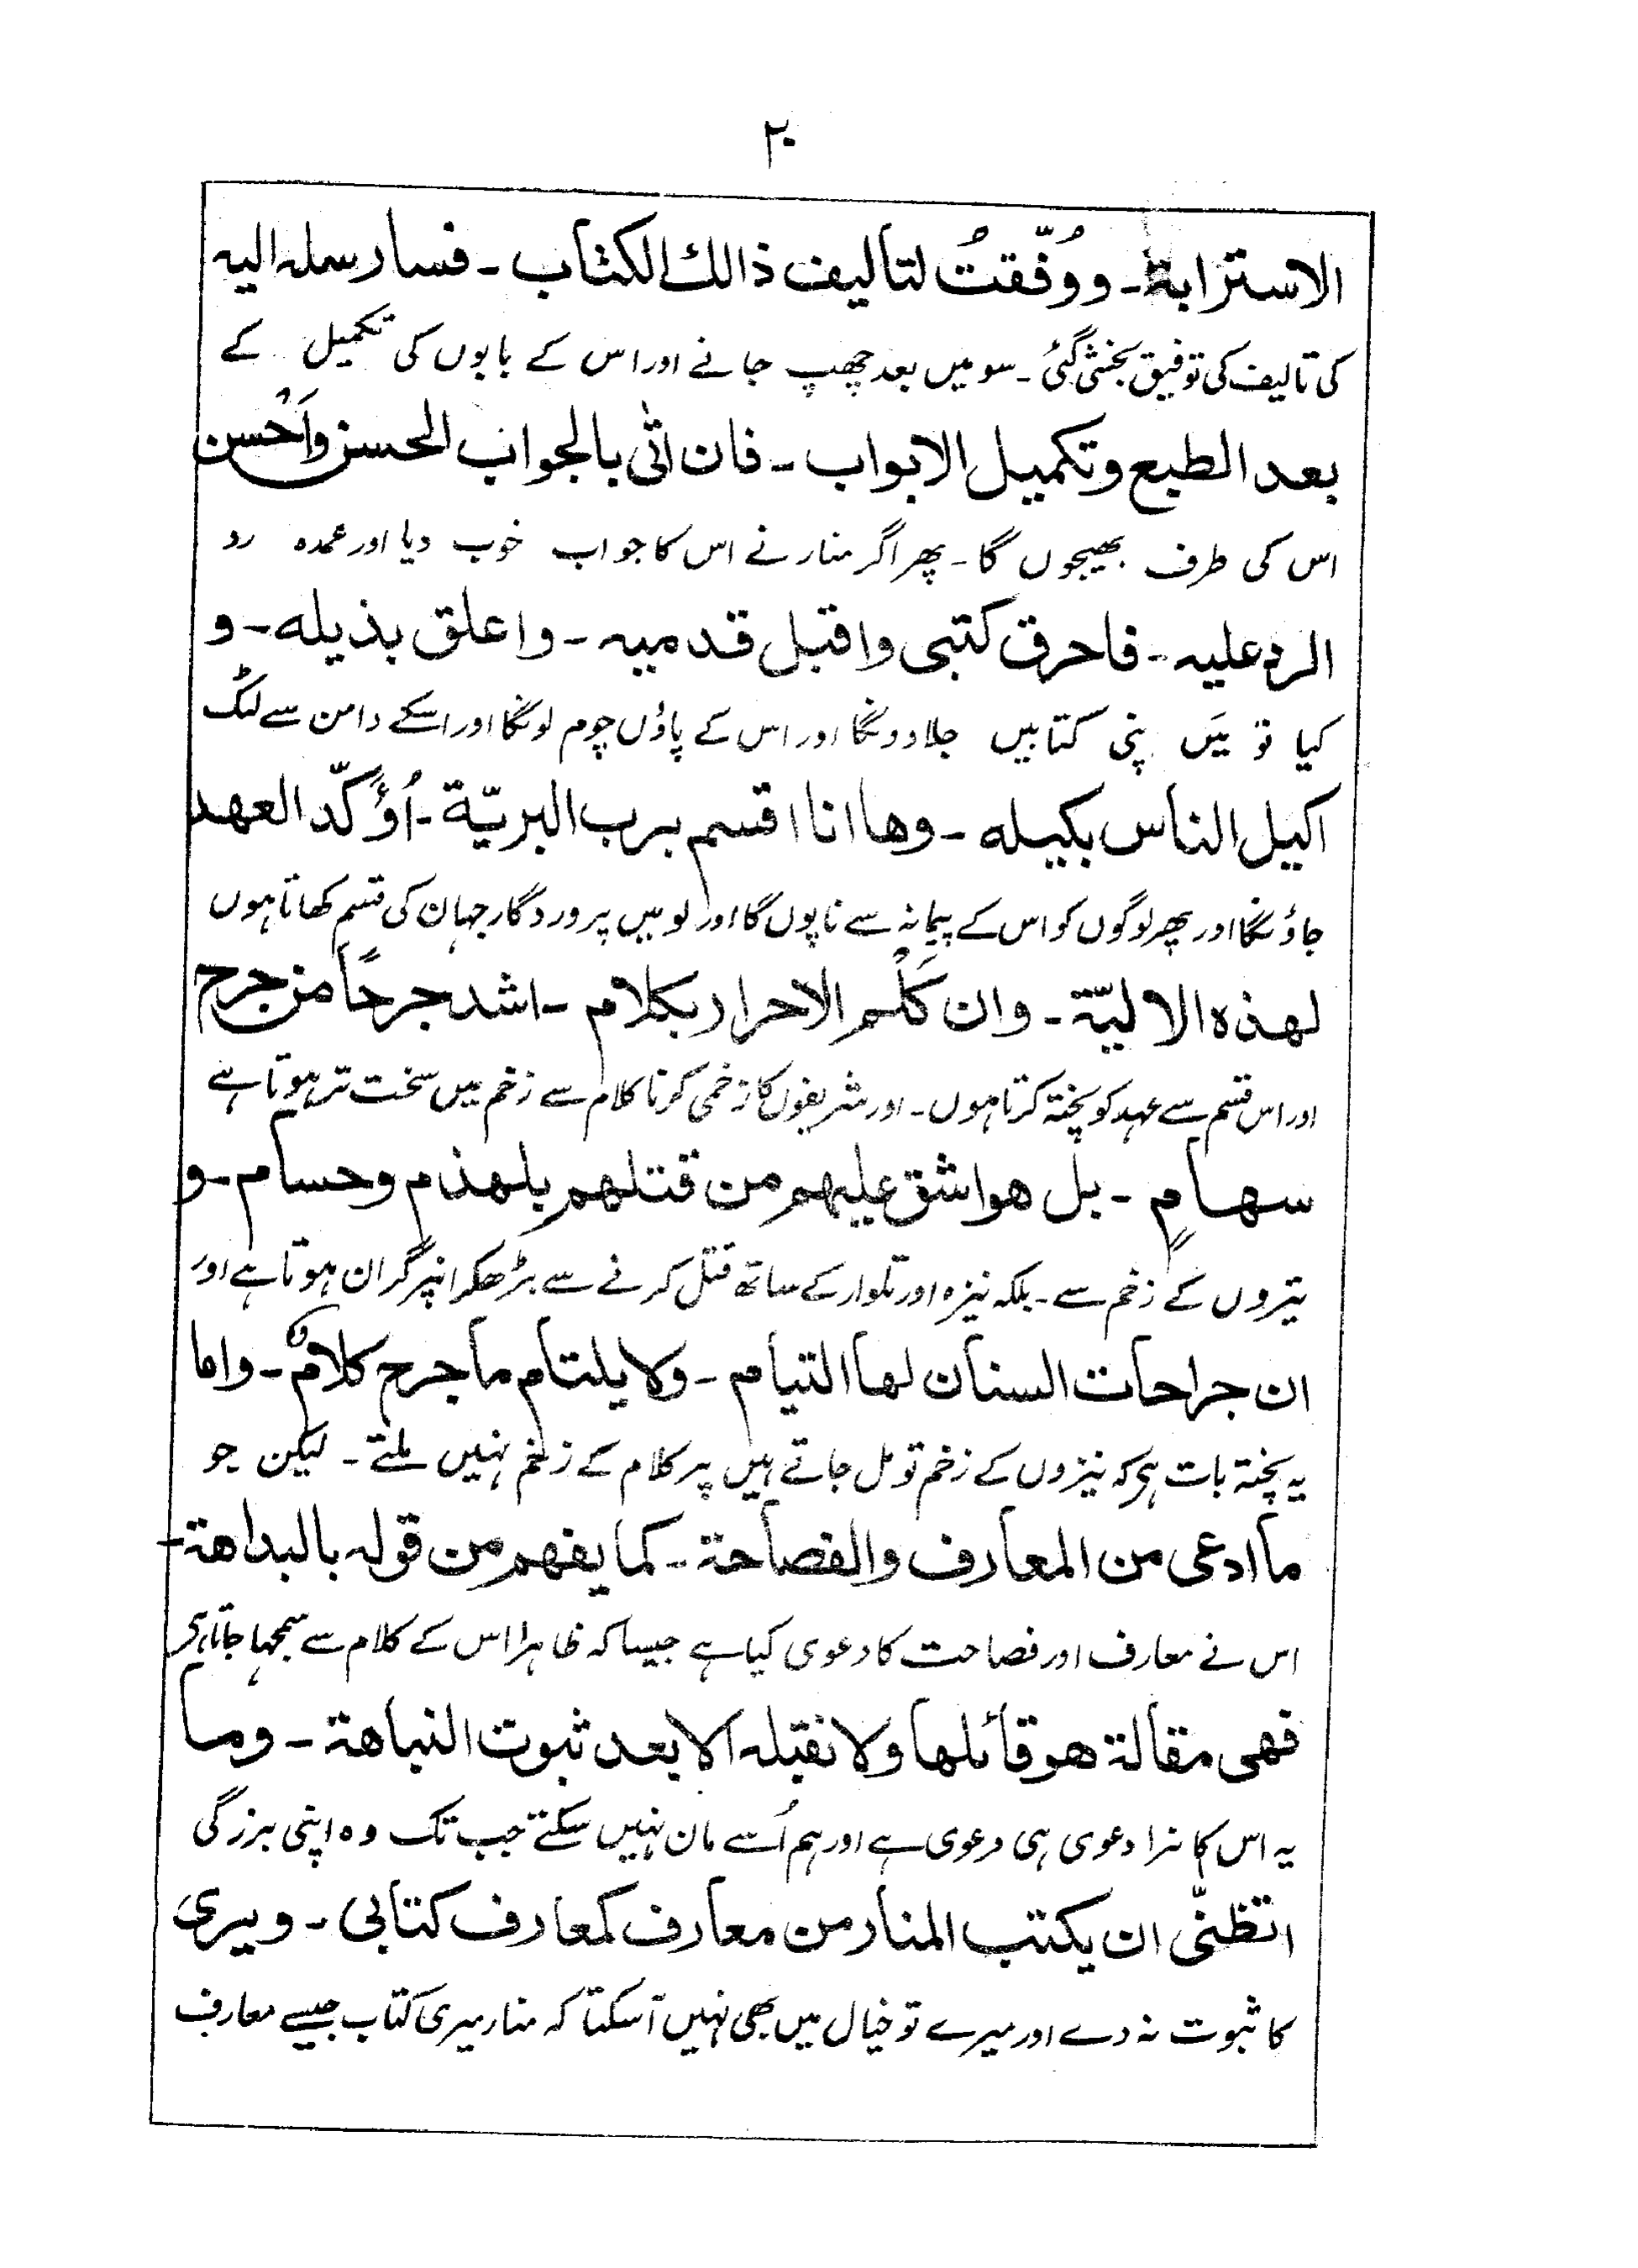 ۲۰
الاسترابة ـ ووُفّقتُ لتاليف ذالك الكتاب ـ فسارسله اليه
کی تالیف کی توفیق بخشی گئی ـ سو میں بعد چھپ جانے اور اس کے بابوں کی تکمیل کے
بعد الطبع وتكميل الابواب ـ فان اتٰى بالجواب الحسن واَحْسن
اس کی طرف بھیجوں گا ـ پھر اگر منار نے اس کا جواب خوب دیا اور عمدہ رد
الرد عليه ـ فاحرق كتبى واقبل قدميه ـ واعلق بذيله ـ و
کیا تو مَیں اپنی کتابیں جلا دونگا اور اس کے پاؤں چوم لونگا اور اسکے دامن سے لٹک
اكيل الناس بكيله ـ وها انا اقسم برب البريّة ـ اُؤكّد العهد
جاؤنگا اور پھر لوگوں کو اس کے پیمانہ سے ناپوں گا اور لو میں پروردگار جہان کی قسم کھاتا ہوں
لهذه الاليّة ـ وان كَلْم الاحرار بكلام ـ اشد جرحًا من جرح
اور اس قسم سے عہد کو پختہ کرتا ہوں ـ اور شریفوں کا زخمی کرنا کلام سے زخم میں سخت تر ہوتا ہے
سهامٍ ـ بل هو اشق عليهم من قتلهم بلهذم وحسام ـ و
تیروں کے زخم سے ـ بلکہ نیزہ اور تلوار کے ساتھ قتل کرنے سے بڑھکر انپر گران ہوتا ہے اور
ان جراحات السنان لها التيام ـ ولا يلتام ما جرح كلامٌ ـ واما
یہ پختہ بات ہی کہ نیزوں کے زخم تو مل جاتے ہیں پر کلام کے زخم نہیں ملتے ـ لیکن جو
ما ادعى من المعارف والفصاحة ـ كما يفهم من قوله بالبداهة ـ
اس نے معارف اور فصاحت کا دعوی کیا ہے جیسا کہ ظاہرا اس کے کلام سے سمجھا جاتا ہی
فهى مقالة هو قائلها ولا نقبله الا بعد ثبوت النباهة ـ وما
یہ اس کا نرا دعوی ہی دعوی ہے اور ہم اُسے مان نہیں سکتے جب تک وہ اپنی بزرگی
اتظنّى ان يكتب المنار من معارف كمعارف كتابى ـ ويرى
کا ثبوت نہ دے اور میرے تو خیال میں بھی نہیں آسکتا کہ منار میری کتاب جیسے معارف